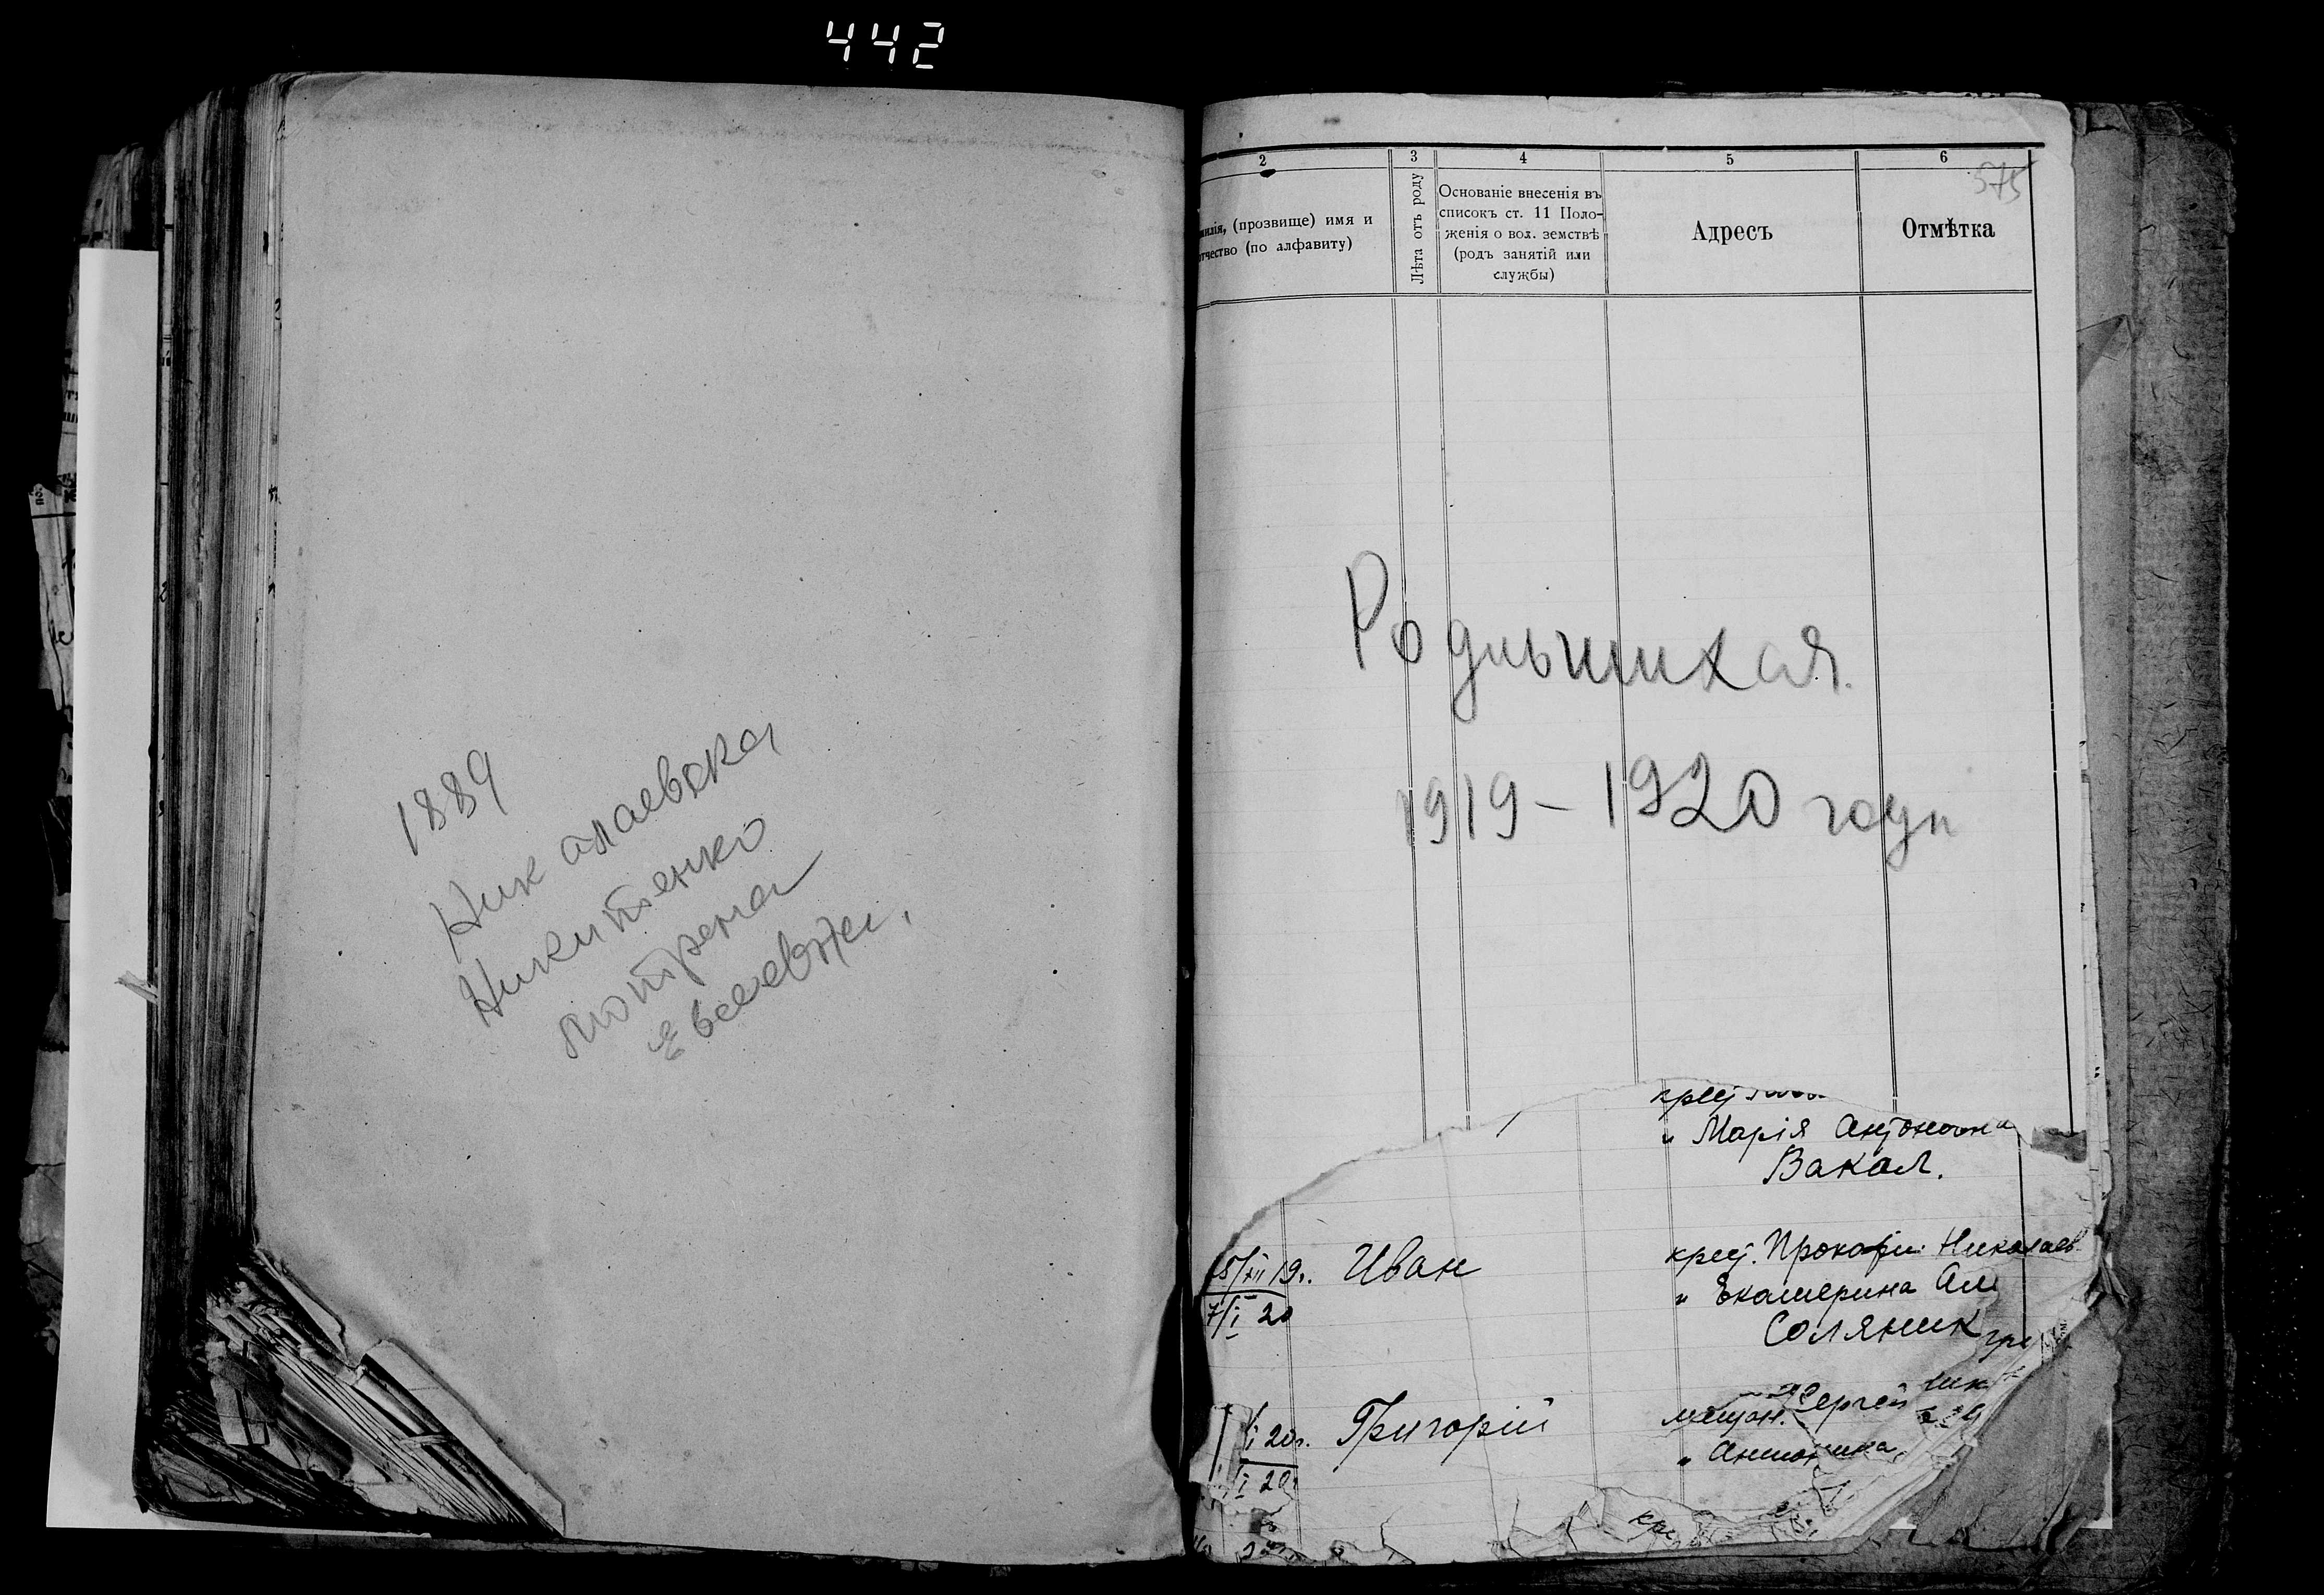 442
1889
Николаевска
Никитенко
2
3
4
5
6
575
милія, (прозвище) имя и
отчество (по алфавиту)
Лѣта отъ роду
Основаніе внесенія въ
списокъ ст. 11 Поло-
женія о вол. земствѣ
(родъ занятій или
службы)
Адресъ
Отмѣтка
Родившихая.
1919 - 1920 годы
крест
" Марія Антоновна
Вакал.
5/XII 19г. Иван
7/I 20
крест. Прокофий Николаев
" Екатерина Ал
Соляник
I 20г. Григорій
I 20г
мещан. Сергей
" Антонина
кре